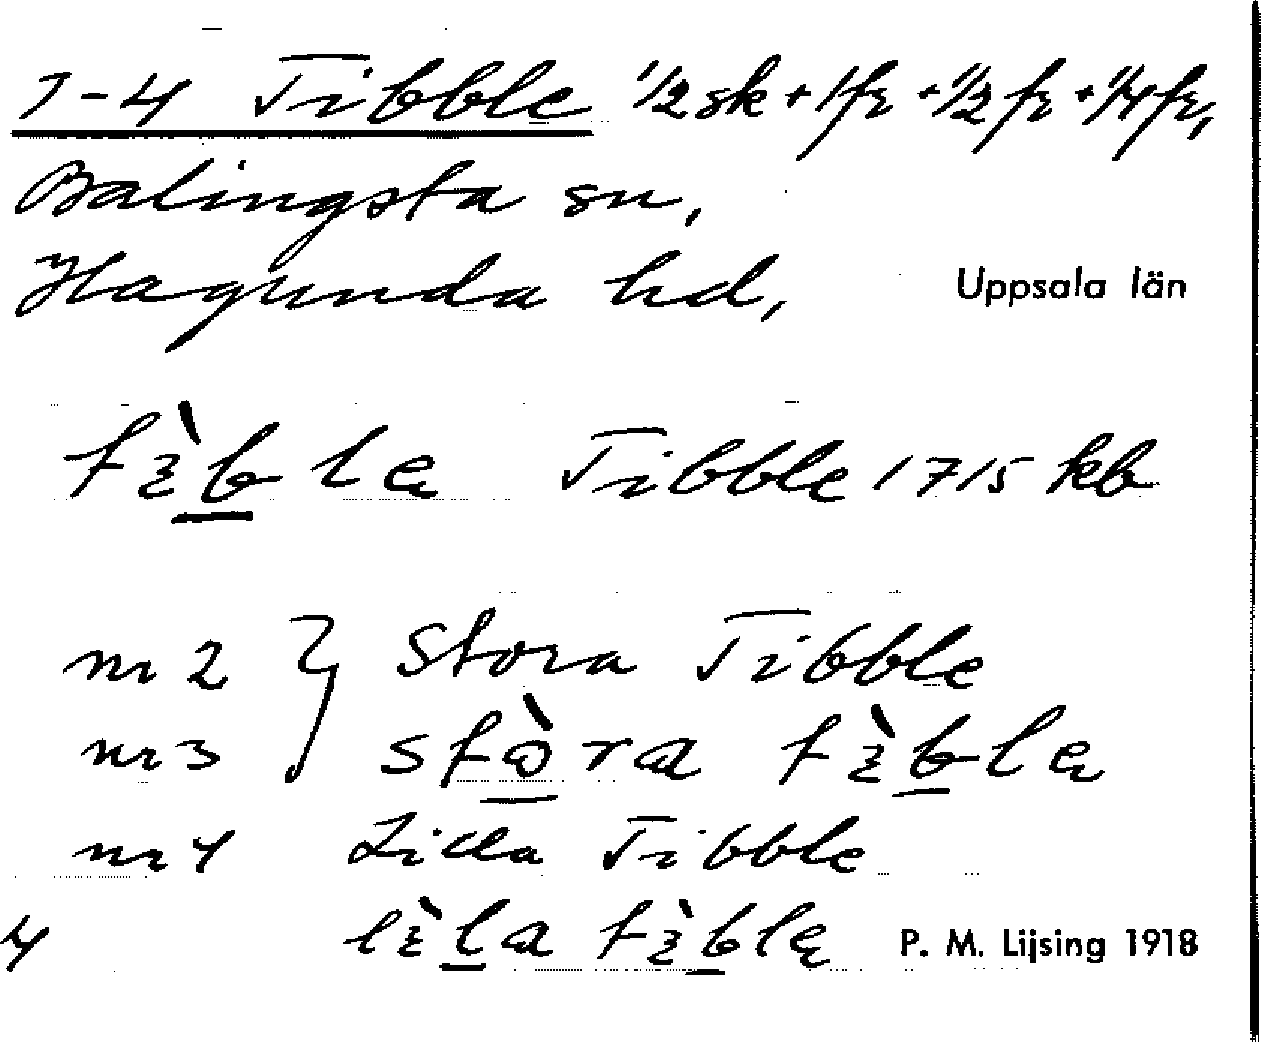 1-4 Tibble 1/2 sk + 1 fr + 1/2 fr + 1/4 fr,
Balingsta sn,
Hagunda hd, Uppsala län
tìble Tibble 1715 kb
nr 2 } Stora Tibble
nr 3 stòra tìble
nr 4 Lilla Tibble
4 lìla tìble P. M. Lijsing 1918